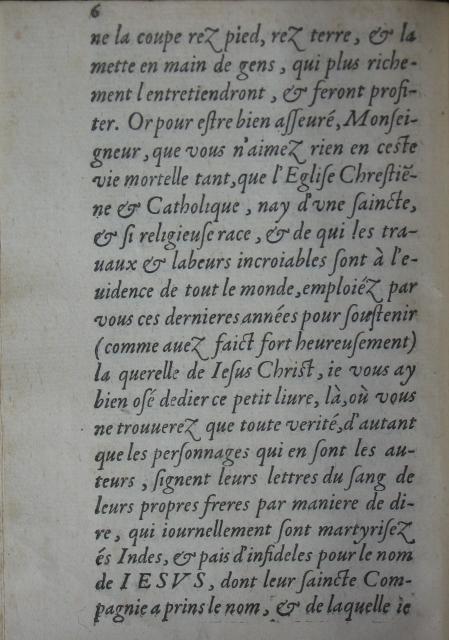 6
ne la coupe rez pied, rez terre, & la
mette en main de gens, qui plus riche-
ment l entretiendront, & feront profi-
ter. Or pour eſtre bien aſſeuré, Monſei-
gneur, que vous n'aimez rien en ceſte
vie mortelle tant, que l'Egliſe Chreſtiẽ-
ne & Catholique, nay d'vne ſaincte,
& ſi religieuſe race, & de qui les tra-
uaux & labeurs incroiables ſont à l'e-
uidence de tout le monde, emploiéz par
vous ces dernieres années pour ſouſtenir
(comme auez faict fort heureuſement)
la querelle de Ieſus Chriſt, ie vous ay
bien oſé dedier ce petit liure, là, où vous
ne trouuerez que toute verité, d'autant
que les perſonnages qui en ſont les au-
teurs, ſignent leurs lettres du ſang de
leurs propres freres par maniere de di-
re, qui iournellement ſont martyriſez
és Indes, & païs d'infideles pour le nom
de IESVS, dont leur ſaincte Com-
pagnie a prins le nom, & de laquelle ie